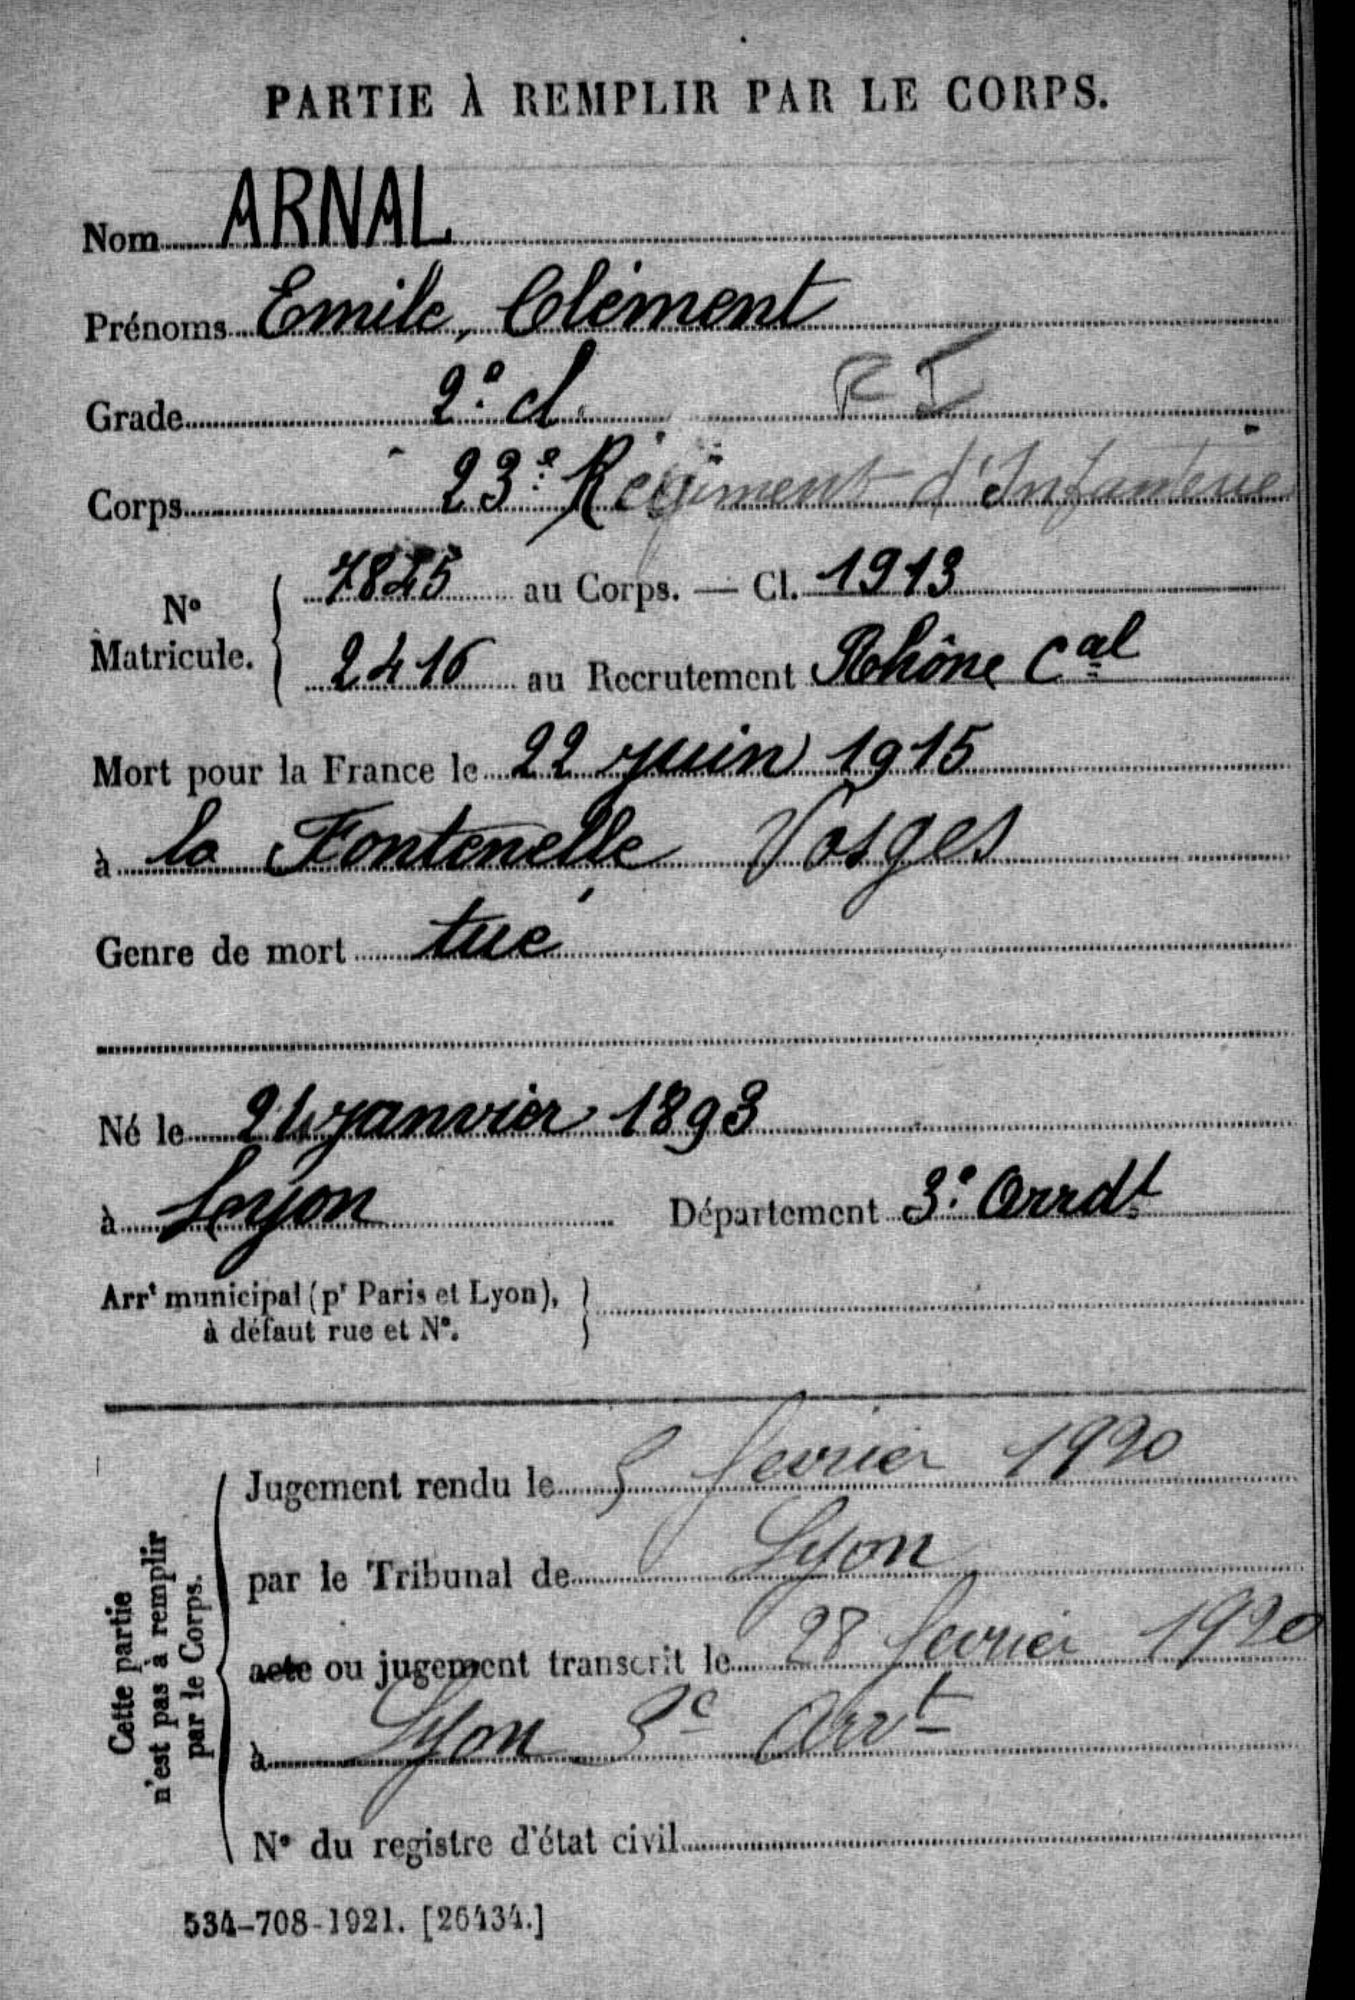 PARTIE À REMPLIR PAR LE CORPS.
Nom ARNAL
Prénoms Emile, Clément
Grade 2e cl. RI
Corps 23e Régiment d'Infanterie
No Matricule. 7825 au Corps. — Cl. 1913
2416 au Recrutement Rhône Cal
Mort pour la France le 22 juin 1915
à la Fontenelle Vosges
Genre de mort tué
Né le 24 janvier 1893
à Lyon Département 3e Arrdt
Arrt municipal (pr Paris et Lyon),
à défaut rue et No.
Cette partie
n'est pas à remplir
par le Corps.
Jugement rendu le 5 février 1920
par le Tribunal de Lyon
acte ou jugement transcrit le 28 février 1920
à Lyon 3e Arrt
No du registre d'état civil
534-708-1921. [26434.]